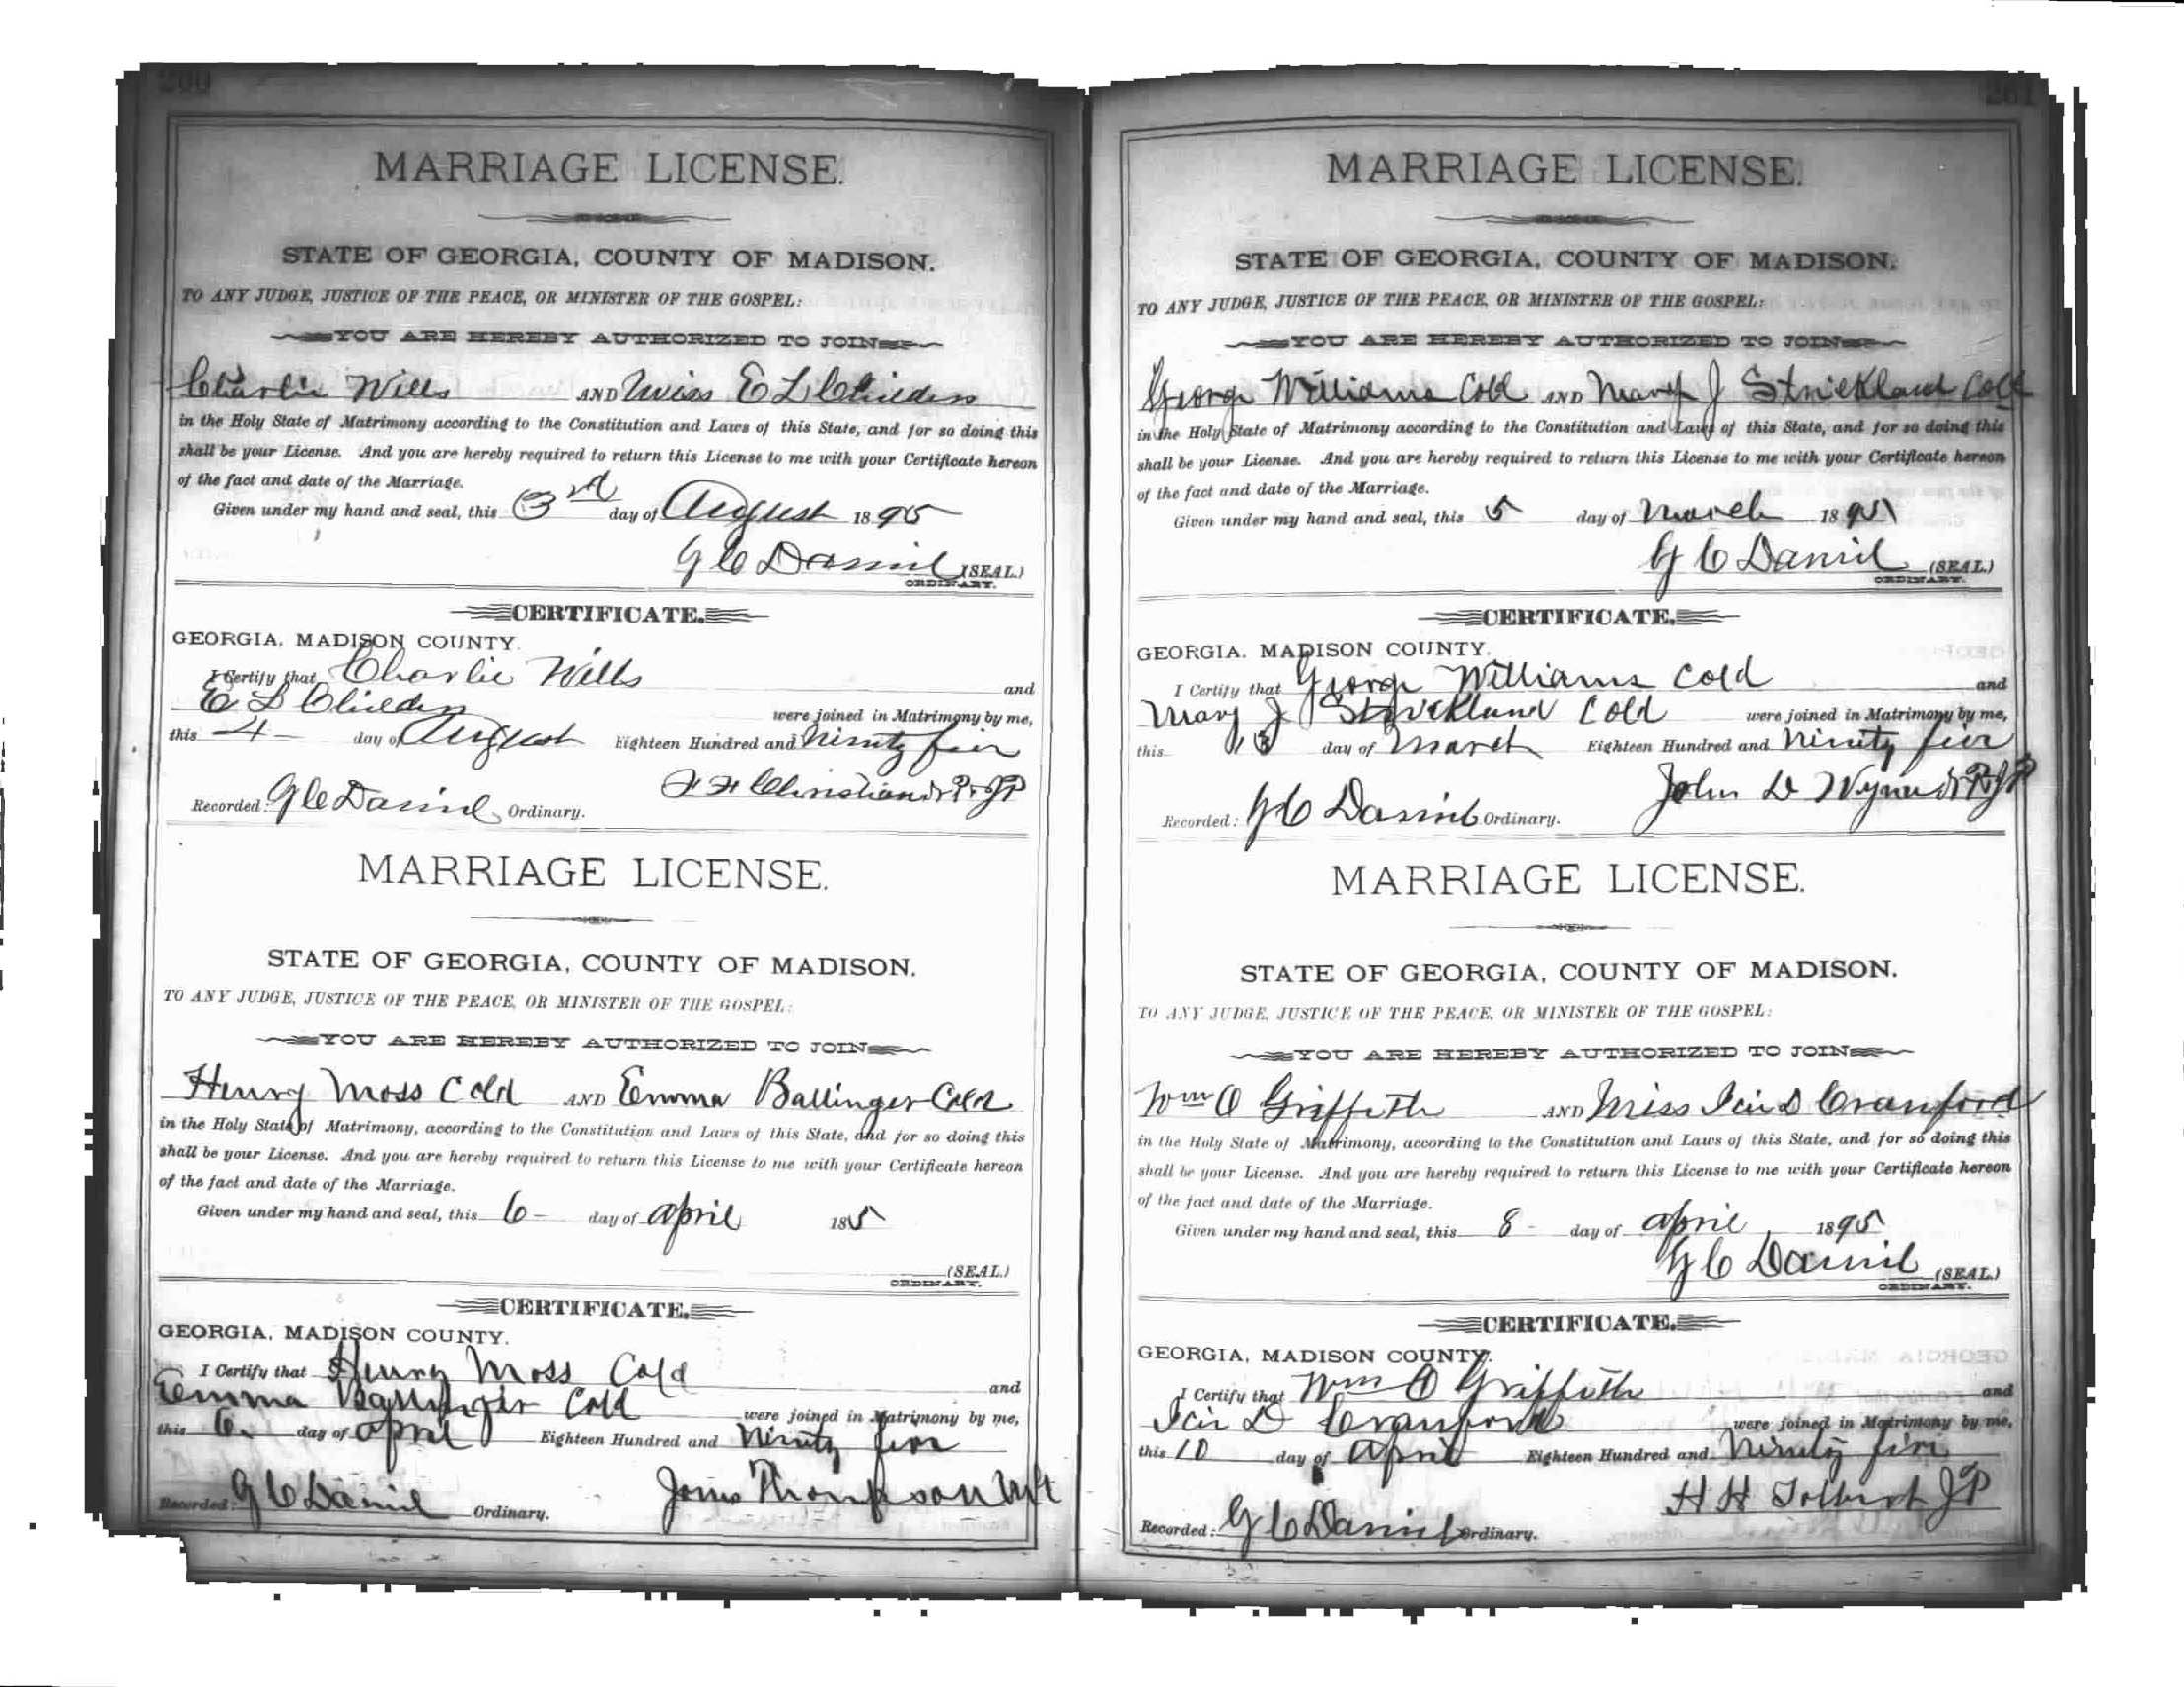 260
MARRIAGE LICENSE.
STATE OF GEORGIA, COUNTY OF MADISON.
TO ANY JUDGE, JUSTICE OF THE PEACE, OR MINISTER OF THE GOSPEL:
YOU ARE HEREBY AUTHORIZED TO JOIN
Charlie Wills AND Miss E L Childers
in the Holy State of Matrimony according to the Constitution and Laws of this State, and for so doing this
shall be your License. And you are hereby required to return this License to me with your Certificate hereon
of the fact and date of the Marriage.
Given under my hand and seal, this 3rd day of August 1895
G C Daniel (SEAL.)
ORDINARY.
CERTIFICATE.
GEORGIA, MADISON COUNTY.
I Certify that Charlie Wills and
E L Childers were joined in Matrimony by me,
this 4 day of August Eighteen Hundred and Ninety five
Recorded: G C Daniel Ordinary. F F Christian
MARRIAGE LICENSE.
STATE OF GEORGIA, COUNTY OF MADISON.
TO ANY JUDGE, JUSTICE OF THE PEACE, OR MINISTER OF THE GOSPEL:
YOU ARE HEREBY AUTHORIZED TO JOIN
Henry Moss Cold AND Emma Ballinger Cold
in the Holy State of Matrimony, according to the Constitution and Laws of this State, and for so doing this
shall be your License. And you are hereby required to return this License to me with your Certificate hereon
of the fact and date of the Marriage.
Given under my hand and seal, this 6 - day of April 185
(SEAL.)
ORDINARY.
CERTIFICATE.
GEORGIA, MADISON COUNTY.
I Certify that Henry Moss Cold and
Emma Ballinger Cold were joined in Matrimony by me,
this 6 day of April Eighteen Hundred and Ninety five
Recorded: G C Daniel Ordinary. Thompson
261
MARRIAGE LICENSE.
STATE OF GEORGIA, COUNTY OF MADISON.
TO ANY JUDGE, JUSTICE OF THE PEACE, OR MINISTER OF THE GOSPEL:
YOU ARE HEREBY AUTHORIZED TO JOIN
George Williams Cold AND Mary J Strickland Cold
in the Holy State of Matrimony according to the Constitution and Laws of this State, and for so doing this
shall be your License. And you are hereby required to return this License to me with your Certificate hereon
of the fact and date of the Marriage.
Given under my hand and seal, this 5 day of March 1895
G C Daniel (SEAL.)
ORDINARY.
CERTIFICATE.
GEORGIA, MADISON COUNTY.
I Certify that George Williams Cold and
Mary J Strickland Cold were joined in Matrimony by me,
this day of March Eighteen Hundred and Ninety five
Recorded: G C Daniel Ordinary. John D
MARRIAGE LICENSE.
STATE OF GEORGIA, COUNTY OF MADISON.
TO ANY JUDGE, JUSTICE OF THE PEACE, OR MINISTER OF THE GOSPEL:
YOU ARE HEREBY AUTHORIZED TO JOIN
Wm O Griffeth AND Miss D Cranford
in the Holy State of Matrimony, according to the Constitution and Laws of this State, and for so doing this
shall be your License. And you are hereby required to return this License to me with your Certificate hereon
of the fact and date of the Marriage.
Given under my hand and seal, this 8 - day of April 1895
G C Daniel (SEAL.)
ORDINARY.
CERTIFICATE.
GEORGIA, MADISON COUNTY.
I Certify that Wm O Griffeth and
D Cranford were joined in Matrimony by me,
this 10 day of April Eighteen Hundred and Ninety five
Recorded: G C Daniel Ordinary. H H Tolbert JP